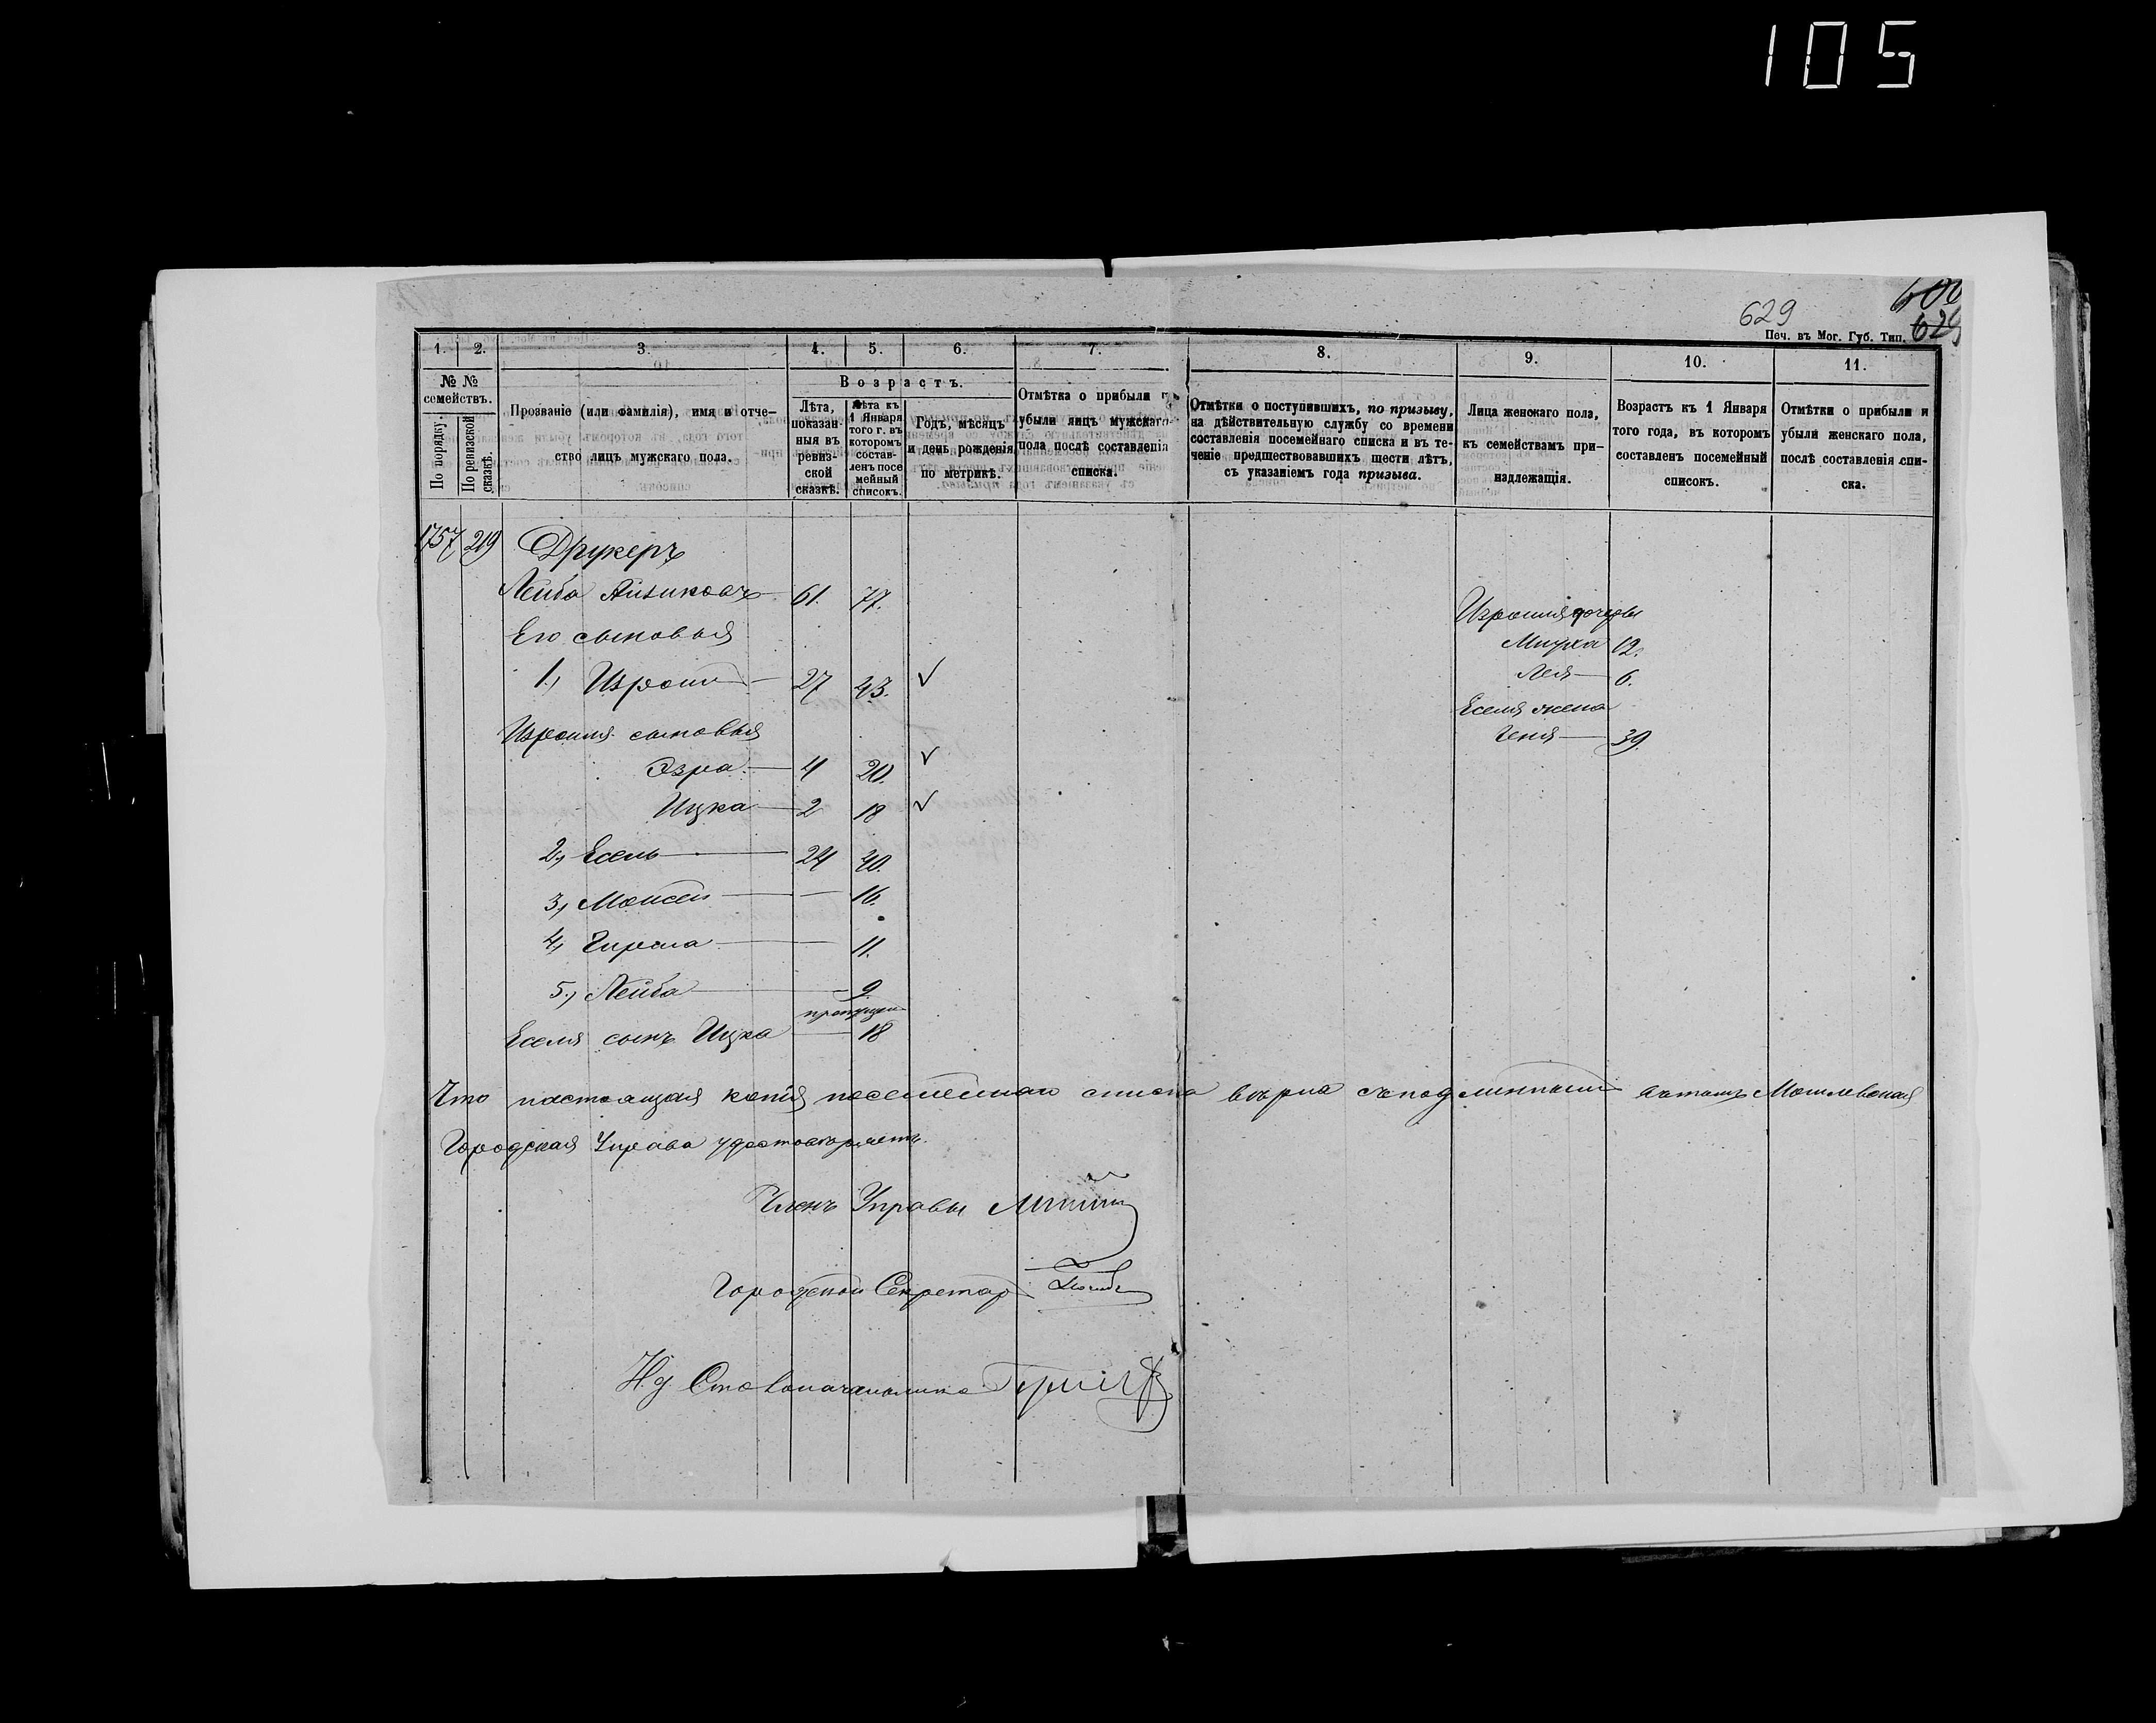 105
629
600
629
Печ. въ Мог. Губ. Тип.
1. 2. 3. 4. 5. 6. 7. 8. 9. 10. 11.
№ №
семействъ.
По порядку.
По ревизской сказкѣ.
Прозваніе (или фамилія), имя и отче-
ство лицъ мужскаго пола.
Возрастъ.
Лѣта,
показан-
ныя въ
ревиз-
ской
сказкѣ.
Лѣта къ
1 Января
того г. въ
которомъ
состав-
ленъ посе
мейный
списокъ.
Годъ, мѣсяцъ
и день рожденія
по метрикѣ.
Отмѣтка о прибыли
убыли лицъ мужскаго
пола послѣ составленія
списка.
Отмѣтки о поступившихъ, по призыву,
на дѣйствительную службу со времени
составленія посемейнаго списка и въ те-
ченіе предшествовавшихъ шести лѣтъ,
съ указаніемъ года призыва.
Лица женскаго пола,
къ семействамъ при-
надлежащія.
Возрастъ къ 1 Января
того года, въ которомъ
составленъ посемейный
списокъ.
Отмѣтки о прибыли и
убыли женскаго пола,
послѣ составленія спи-
ска.
1757 219 Друкеръ
Лейба Айзиковъ 61. 77.
Его сыновья
1, Изроил 27 43.
Изроиля сыновья
Эзра 4 20.
Ицка 2 18
2, Есель 24 40.
3, Моисей 16.
4, Гирша 11.
5, Лейба 9
Еселя сынъ Ицка 18
Изроиля дочери
Мирка 12.
Лея 6.
Еселя жена
Геня 39
Что настоящая копія посемейнаго списка вѣрна съ подлиннымъ актамъ Могилевская
Городская Управа удостовѣряетъ.
Членъ Управы
Городской Секретар
И. д. Столоначальника